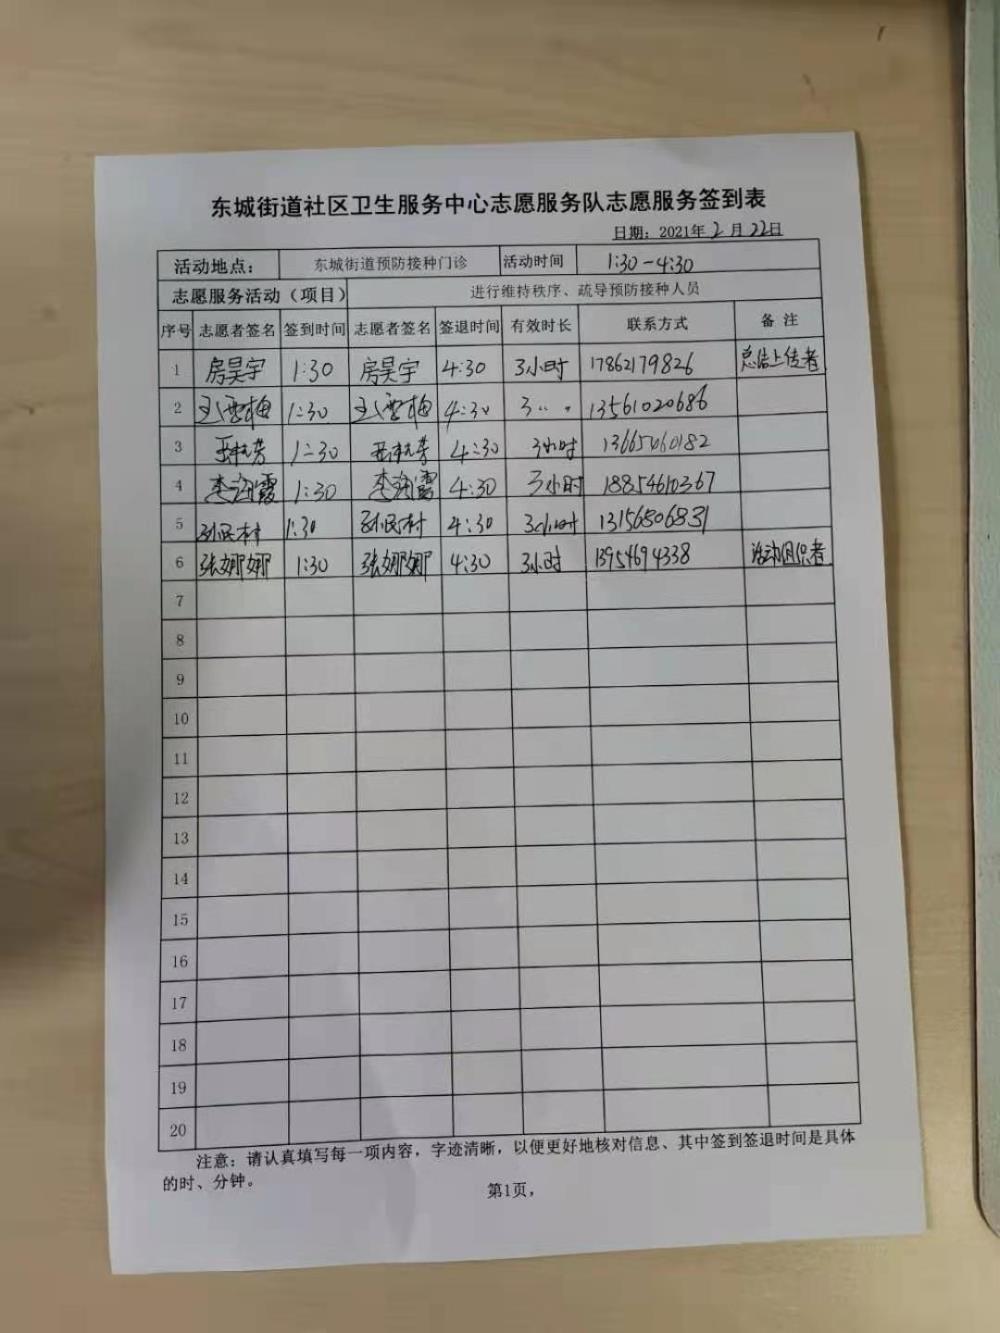 东城街道社区卫生服务中心志愿服务队志愿服务签到表
日期：2021年2月22日
活动地点： 东城街道预防接种门诊 活动时间 1:30-4:30
志愿服务活动（项目） 进行维持秩序、疏导预防接种人员
序号 志愿者签名 签到时间 志愿者签名 签退时间 有效时长 联系方式 备 注
1 房昊宇 1:30 房昊宇 4:30 3小时 17862179826 总结上传者
2 王雪梅 1:30 王雪梅 4:30 3〃 〃 13561020686
3 1:30 4:30 3小时 13665460182
4 李海霞 1:30 李海霞 4:30 3小时 18854610367
5 孙民村 1:30 孙民村 4:30 3小时 13156506831
6 张娜娜 1:30 张娜娜 4:30 3小时 13954694338 活动组织者
7
8
9
10
11
12
13
14
15
16
17
18
19
20
注意：请认真填写每一项内容，字迹清晰，以便更好地核对信息、其中签到签退时间是具体
的时、分钟。
第1页，